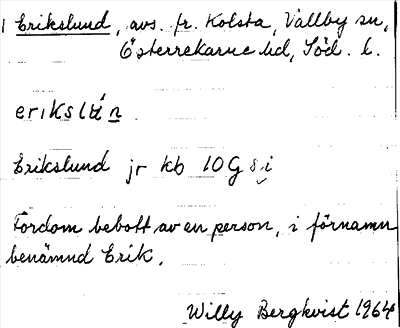 1 Erikslund, avs. fr. Kolsta, Vallby sn,
Österrekarne hd, Söd. l.
erikslún
Erikslund jr kb 10G 8i
Fordom bebott av en person, i förnamn
benämnd Erik.
Willy Bergkvist 1964